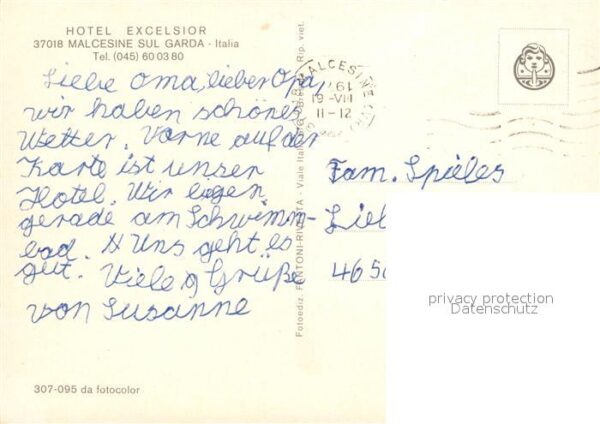 HOTEL EXCELSIOR
37018 MALCESINE SUL GARDA - Italia
Tel. (045) 60 03 80
Liebe Oma, lieber Opa,
wir haben schönes
Wetter. Vorne auf der
Karte ist unser
Hotel. Wir liegen
gerade am Schwimm-
bad. Uns geht es
gut. Viele Grüße
von Susanne
307-095 da fotocolor
Fotoediz. FANTONI-RIVALTA - Viale Italia
Rip. viet.
MALCESINE
19.
VIII
11-12
Fam. Spieles
privacy protection
Datenschutz